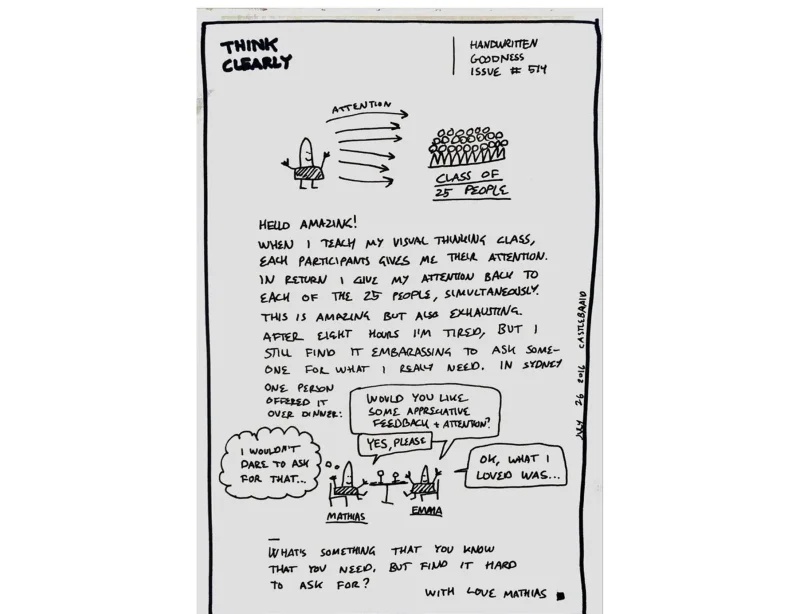 THINK
CLEARLY
HANDWRITTEN
GOODNESS
ISSUE # 514
ATTENTION
CLASS OF
25 PEOPLE
HELLO AMAZING!
WHEN I TEACH MY VISUAL THINKING CLASS,
EACH PARTICIPANTS GIVES ME THEIR ATTENTION.
IN RETURN I GIVE MY ATTENTION BACK TO
EACH OF THE 25 PEOPLE, SIMULTANEOUSLY.
THIS IS AMAZING BUT ALSO EXHAUSTING.
AFTER EIGHT HOURS I'M TIRED, BUT I
STILL FIND IT EMBARASSING TO ASK SOME-
ONE FOR WHAT I REALLY NEED. IN SYDNEY
ONE PERSON
OFFERED IT
OVER DINNER:
WOULD YOU LIKE
SOME APPRECIATIVE
FEEDBACK + ATTENTION?
YES, PLEASE
I WOULDN'T
DARE TO ASK
FOR THAT...
OK, WHAT I
LOVED WAS...
MATHIAS
EMMA
WHAT'S SOMETHING THAT YOU KNOW
THAT YOU NEED, BUT FIND IT HARD
TO ASK FOR?
WITH LOVE MATHIAS
JULY 26 2016 CASTLEBRAID